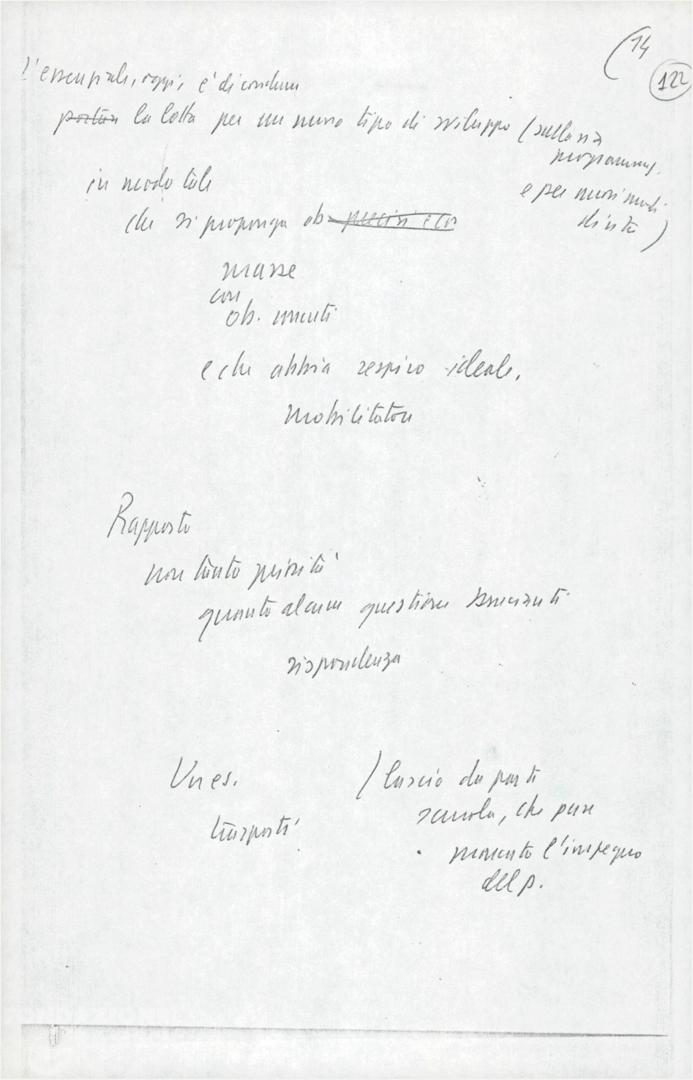 (14
122
L'essenziale, oggi, è di condurre
portare la lotta per un nuovo tipo di sviluppo (sulla via
programmaz.
e per nuovi modi
di vita)
in modo tale
che si proponga ob. precisi e con
masse
con
ob.
e che abbia respiro ideale,
mobilitatore
Rapporto
non tanto priorità
quanto alcune questioni brucianti
rispondenza
Un es.
trasporti
/ lascio da parte
scuola, che pure
l'impegno
del p.